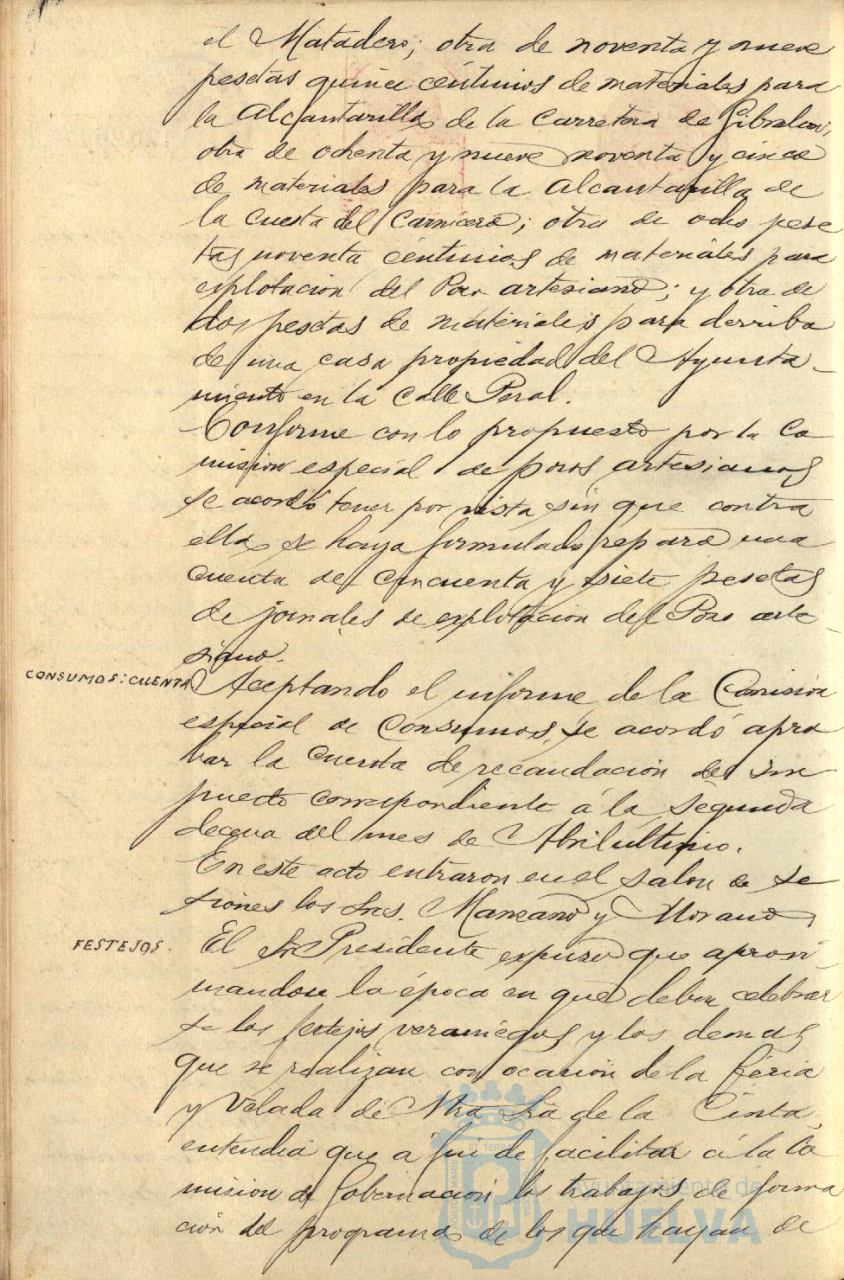 el Matadero; otra de noventa y nueve
pesetas quince céntimos de materiales para
la Alcantarilla de la Carretera de Gibraleon;
otra de ochenta y nueve noventa y cinco
de materiales para la Alcantarilla de
la Cuesta del Carnicero; otra de ocho pese
tas noventa céntimos de materiales para
esplotacion del Pozo artesiano; y otra de
dos pesetas de materiales para derribo
de una casa propiedad del Ayunta-
miento en la calle Peral.
Conforme con lo propuesto por la Co
mision especial de pozos artesianos
se acordó tener por vista sin que contra
ella se haya formulado reparo una
cuenta de cincuenta y siete pesetas
de jornales de esplotacion del Pozo arte-
siano.
CONSUMOS: CUENTA
Aceptando el informe de la Comision
especial de Consumos, se acordó apro
bar la cuenta de recaudación del im
puesto correspondiente á la segunda
decena del mes de Abril último.
En este acto entraron en el salon de se
siones los Sres. Manzano y Morano
FESTEJOS.
El Sr Presidente expuso que aproxi-
mandose la época en que deben celebrar
se los festejos veraniegos y los demas
que se realizan con ocasión de la feria
y Velada de Ntra Sra de la Cinta,
entendia que á fin de facilitar á la Co
mision de Gobernacion los trabajos de forma
ción del programa de los que hayan de
Ayuntamiento de
HUELVA